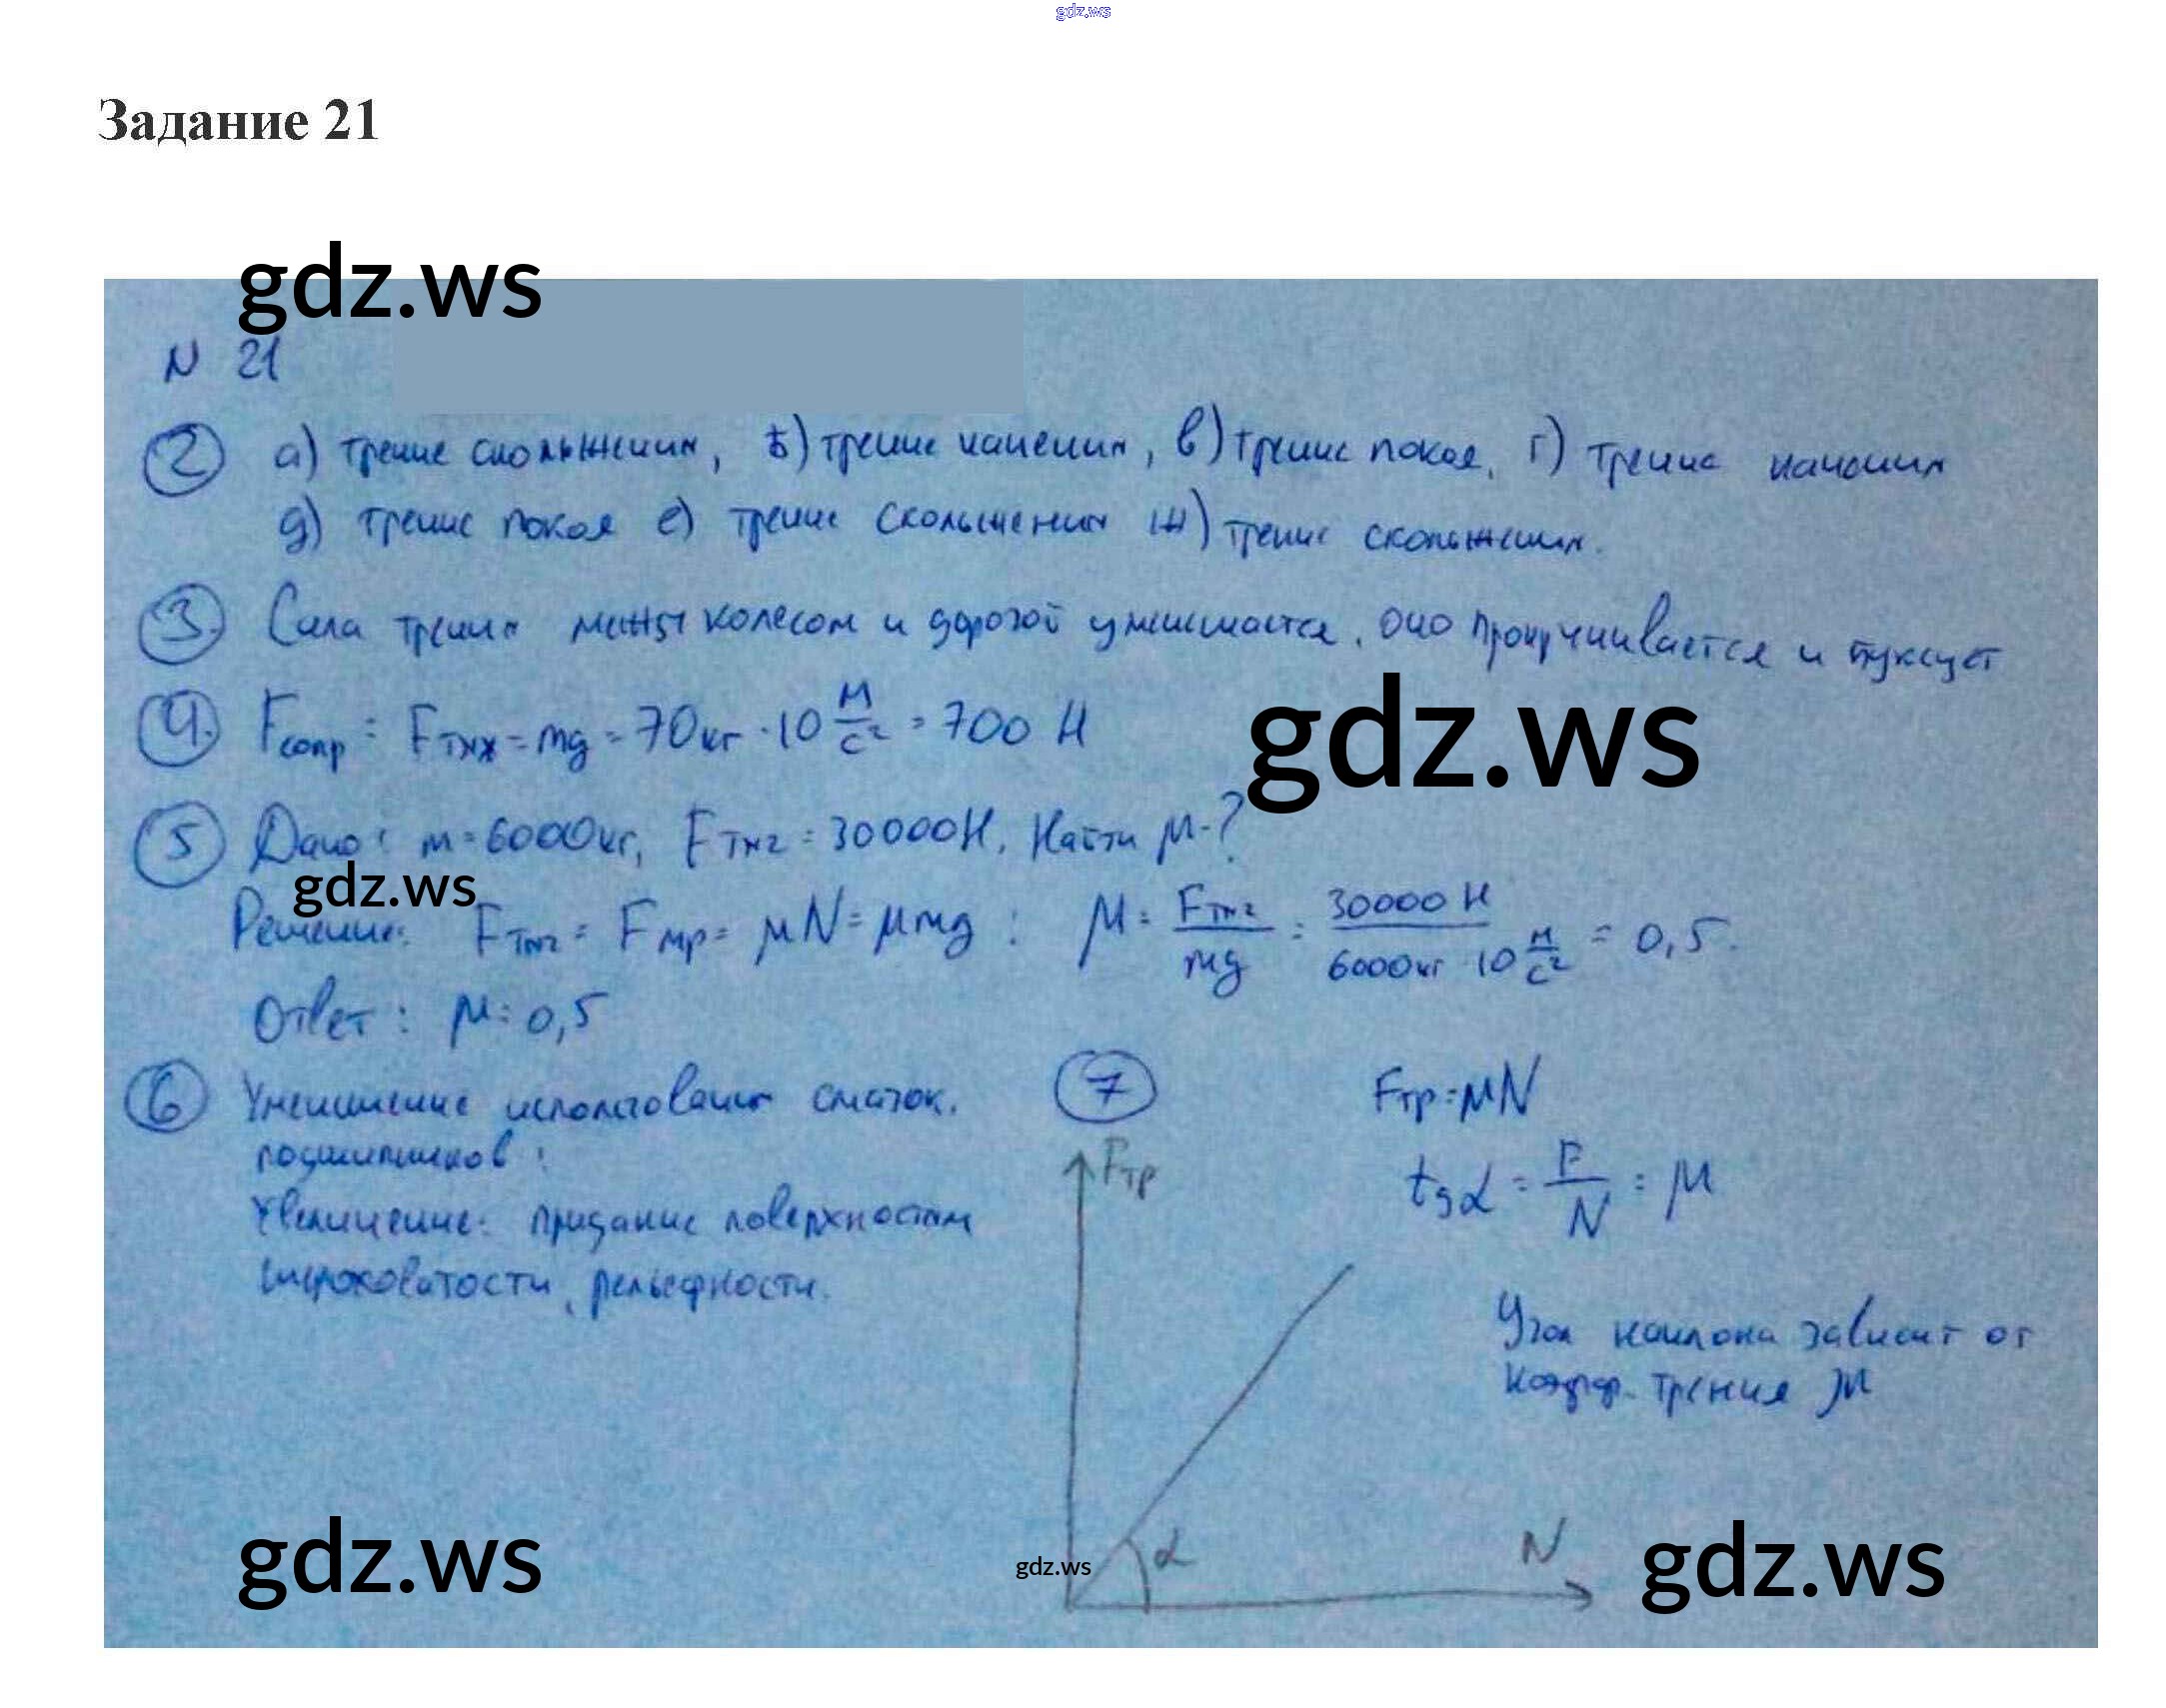 gdz.ws
Задание 21
gdz.ws
N 21
② а) трение скольжения, б) трение качения, в) трение покоя, г) трение качения
д) трение покоя е) трение скольжения ж) трение скольжения.
③. Сила трения между колесом и дорогой уменьшается. Оно прокручивается и буксует
④. Fсопр = Fтяж = mg = 70 кг · 10 м/с² = 700 Н
gdz.ws
⑤ Дано: m = 6000 кг, Fтяг = 30000 Н. Найти μ-?
gdz.ws
Решение: Fтяг = Fтр = μN = μmg : μ = Fтяг/mg = 30000 Н / 6000 кг 10 м/с² = 0,5.
Ответ: μ = 0,5
⑥ Уменьшение использования смазок.
подшипников:
Увеличение: придание поверхностям
шероховатости, рельефности.
⑦ Fтр = μN
Fтр
tgα = F/N = μ
Угол наклона зависит от
коэфф. трения μ
α
N
gdz.ws
gdz.ws
gdz.ws